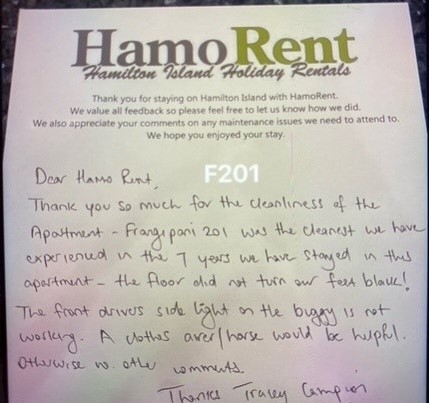 HamoRent
Hamilton Island Holiday Rentals
Thank you for staying on Hamilton Island with HamoRent.
We value all feedback so please feel free to let us know how we did.
We also appreciate your comments on any maintenance issues we need to attend to.
We hope you enjoyed your stay.
Dear Hamo Rent,
F201
Thank you so much for the cleanliness of the
Apartment - Frangipani 201 was the cleanest we have
experienced in the 7 years we have stayed in this
apartment - the floor did not turn our feet black!
The front drivers side light on the buggy is not
working. A clothes airer/horse would be helpful.
Otherwise no other comments.
Thanks Tracey Campion